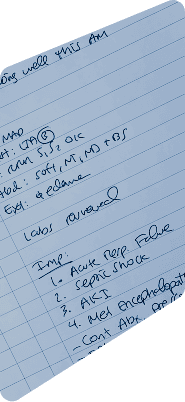 well this AM
NAD
: CTA (B)
: RRR S1, S2 OK
Abd: soft, NT, ND + BS
Ext: edema
Labs reviewed
Imp:
1. Acute Resp. Failure
2. Septic Shock
3. AKI
4. Met Encephalopat
- Cont Abx,